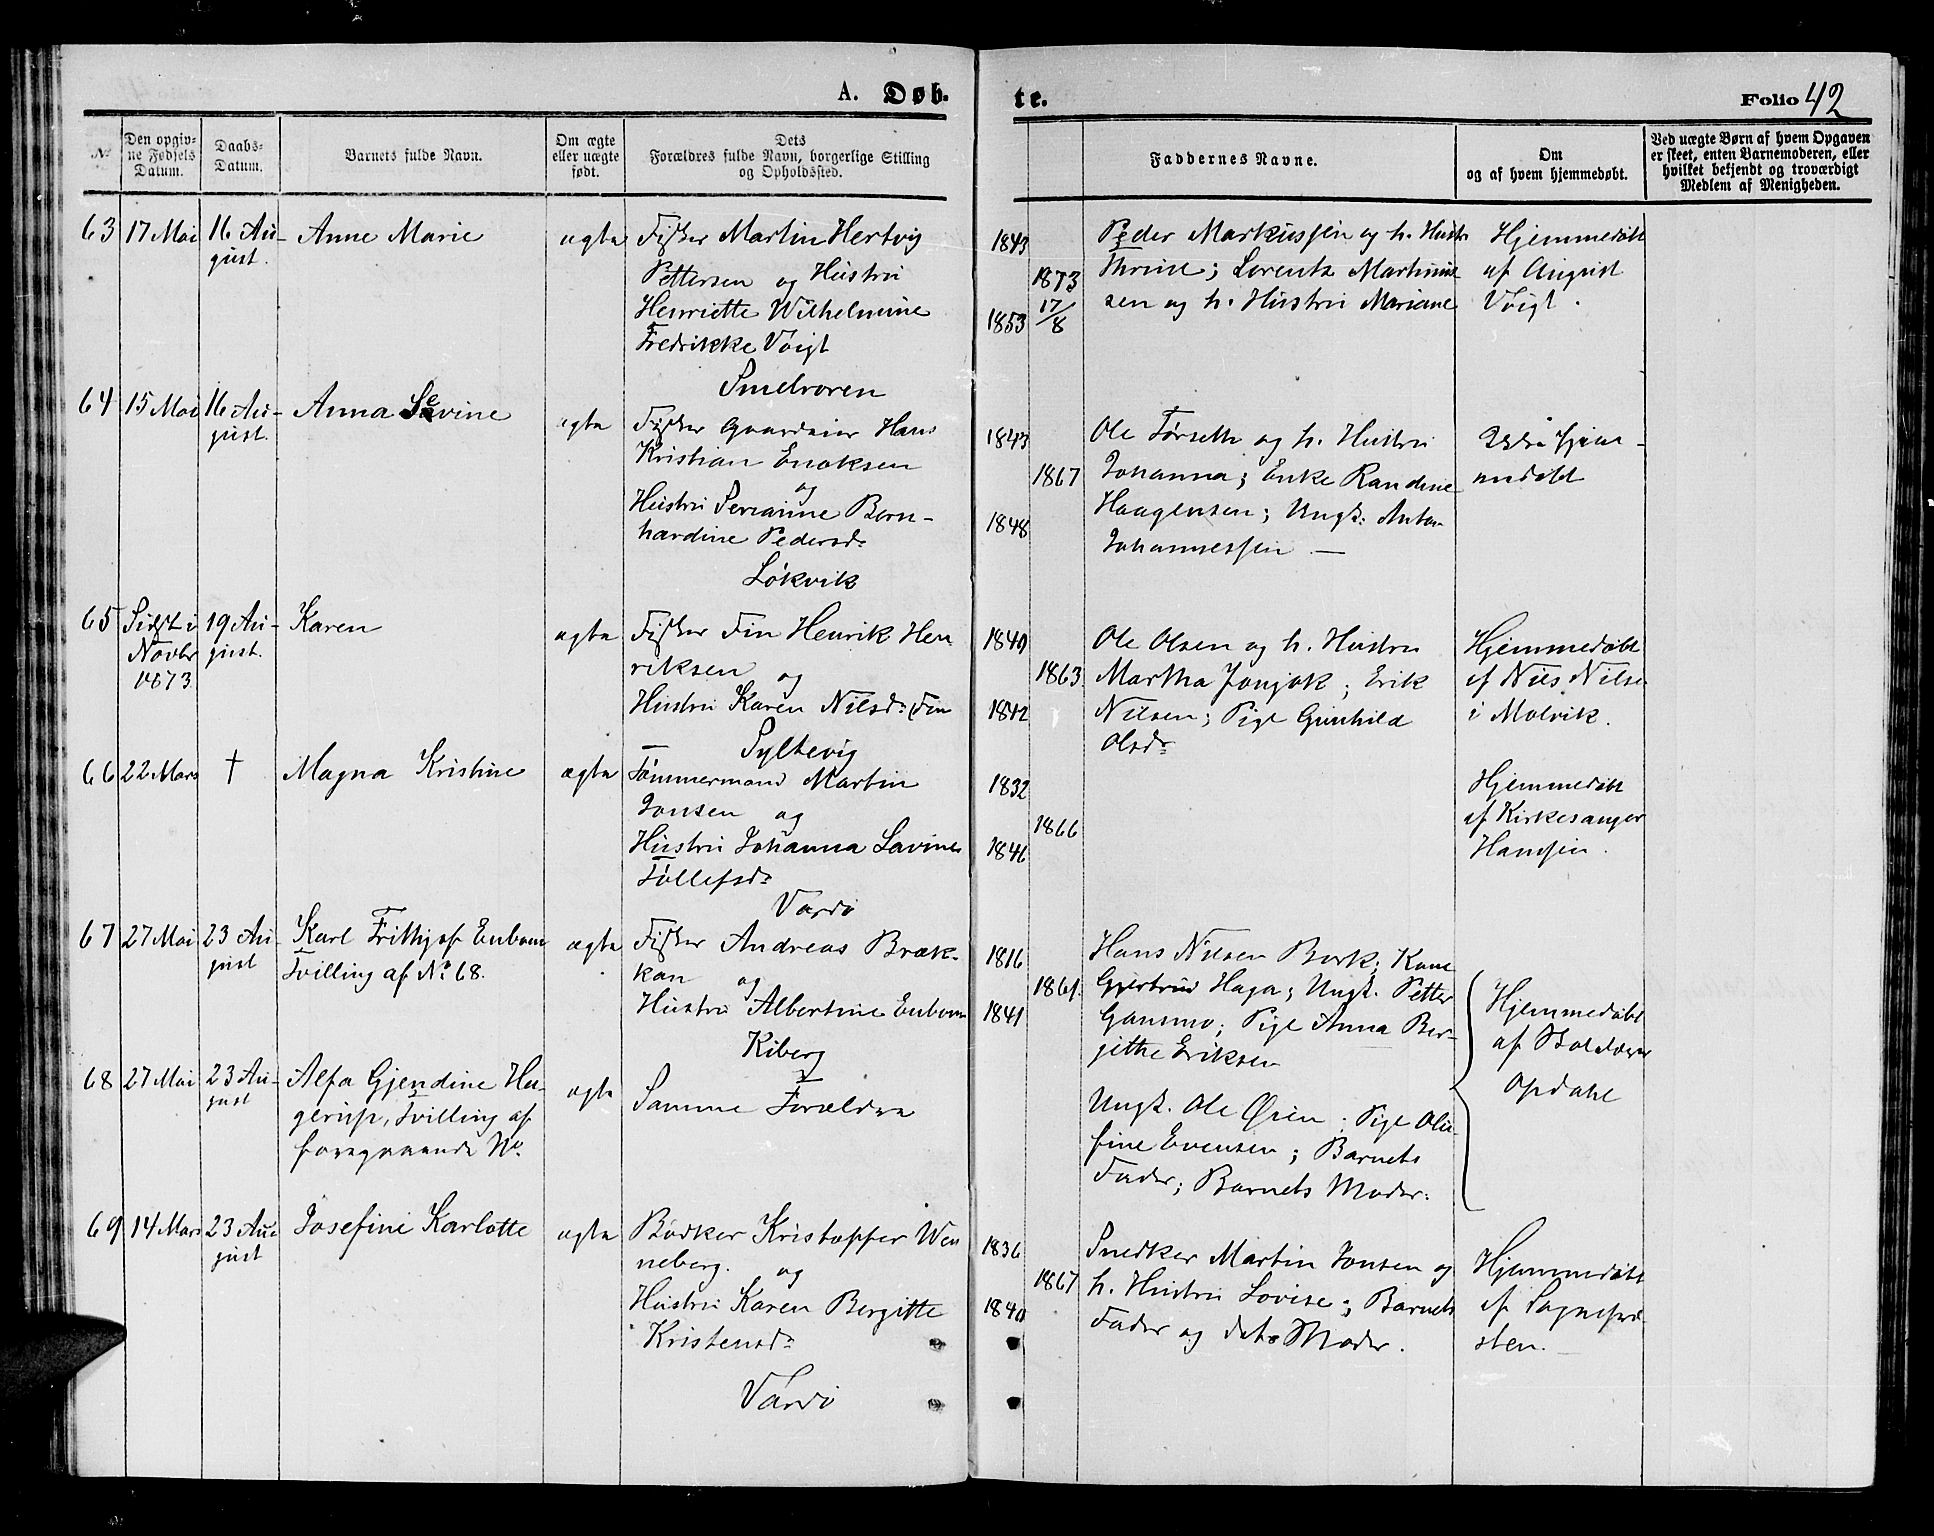 A. Døb.
te.
Folio 42
No
Den opgivne Fødsels Datum.
Daabs-Datum.
Barnets fulde Navn.
Om ægte eller uægte født.
Dets Forældres fulde Navn, borgerlige Stilling og Opholdssted.
Faddernes Navne.
Om og af hvem hjemmedøbt.
Ved uægte Børn af hvem Opgaven er skeet, enten Barnemoderen, eller hvilket bekjendt og troværdigt Medlem af Menigheden.
63 17 Mai 16 Au-
gust.
Anne Marie
ægte
Fisker Martin Hertvig
Pettersen og Hustru
Henriette Wilhelmine
Fredrikke Voigt
Smelroren
1843
1873
17/8
1853
Peder Markussen og h. Hustr
Thrine; Lorentz Martinus
sen og h. Hustru Mariane
Hjemmedøbt
af August
Voigt.
64 15 Mai 16 Au-
gust.
Anna Sevine
ægte
Fisker Gaardeier Hans
Kristian Enoksen
og
Hustru Bern-
hardine Pedersd:
Lökvik
1843
1867
1848
Ole Förseth og h. Hustru
Johanna; Enke Randine
Haagensen; Ungk: Anton
Johannessen —
Ikke hjem-
medøbt
65 Sidst i
Novbr
1873
19 Au-
gust.
Karen
ægte
Fisker Fin Henrik Hen
riksen og
Hustru Karen Nilsd: (Fin
— Syltevig
1840
1863.
1842
Ole Olsen og h. Hustru
Martha Jonjok; Erik
Nilsen; Pige Gunhild
Olsdr
Hjemmedøbt
af Nils Nilse
i Molvik.
66 22 Mars †
Magna Kristine
ægte
Tømmermand Martin
Jonsen og
Hustru Johanna Lavine
Tollefsdr
Vardö
1832
1866
1846
Hjemmedøbt
af Kirkesanger
Hansen.
67 27 Mai 23 Au-
gust
Karl Frithjof Enbom
Tvilling af No 68.
ægte
Fisker Andreas Bræk-
kan og
Hustru Albertine Enbom
Kiberg
1816
1861.
1841
Hans Nilsen Bork; Kone
Gjertrud Haga; Ungk. Petter
Gansmo; Pige Anna Ber-
githe Eriksen
Hjemmedøbt
af
Opdahl
68 27 Mai 23 Au-
gust
Alfa Gjendine Hu-
gerup, Tvilling af
foregaaende No.
ægte
Samme Forældre
Ungk. Ole Øien; Pige Olu-
fine Evensen; Barnets
Fader; Barnets Moder.
69 14 Mars 23 Au-
gust
Josefine Karlotte
ægte
Bödker Kristoffer Wen
neberg. og
Hustru Karen Bergitte
Kristensdr
Vardö
1836
1867
1840
Snedker Martin Jonsen og
h. Hustru Lovise; Barnets
Fader og dets Moder.
Hjemmedøbt
af Sognepræ
sten.